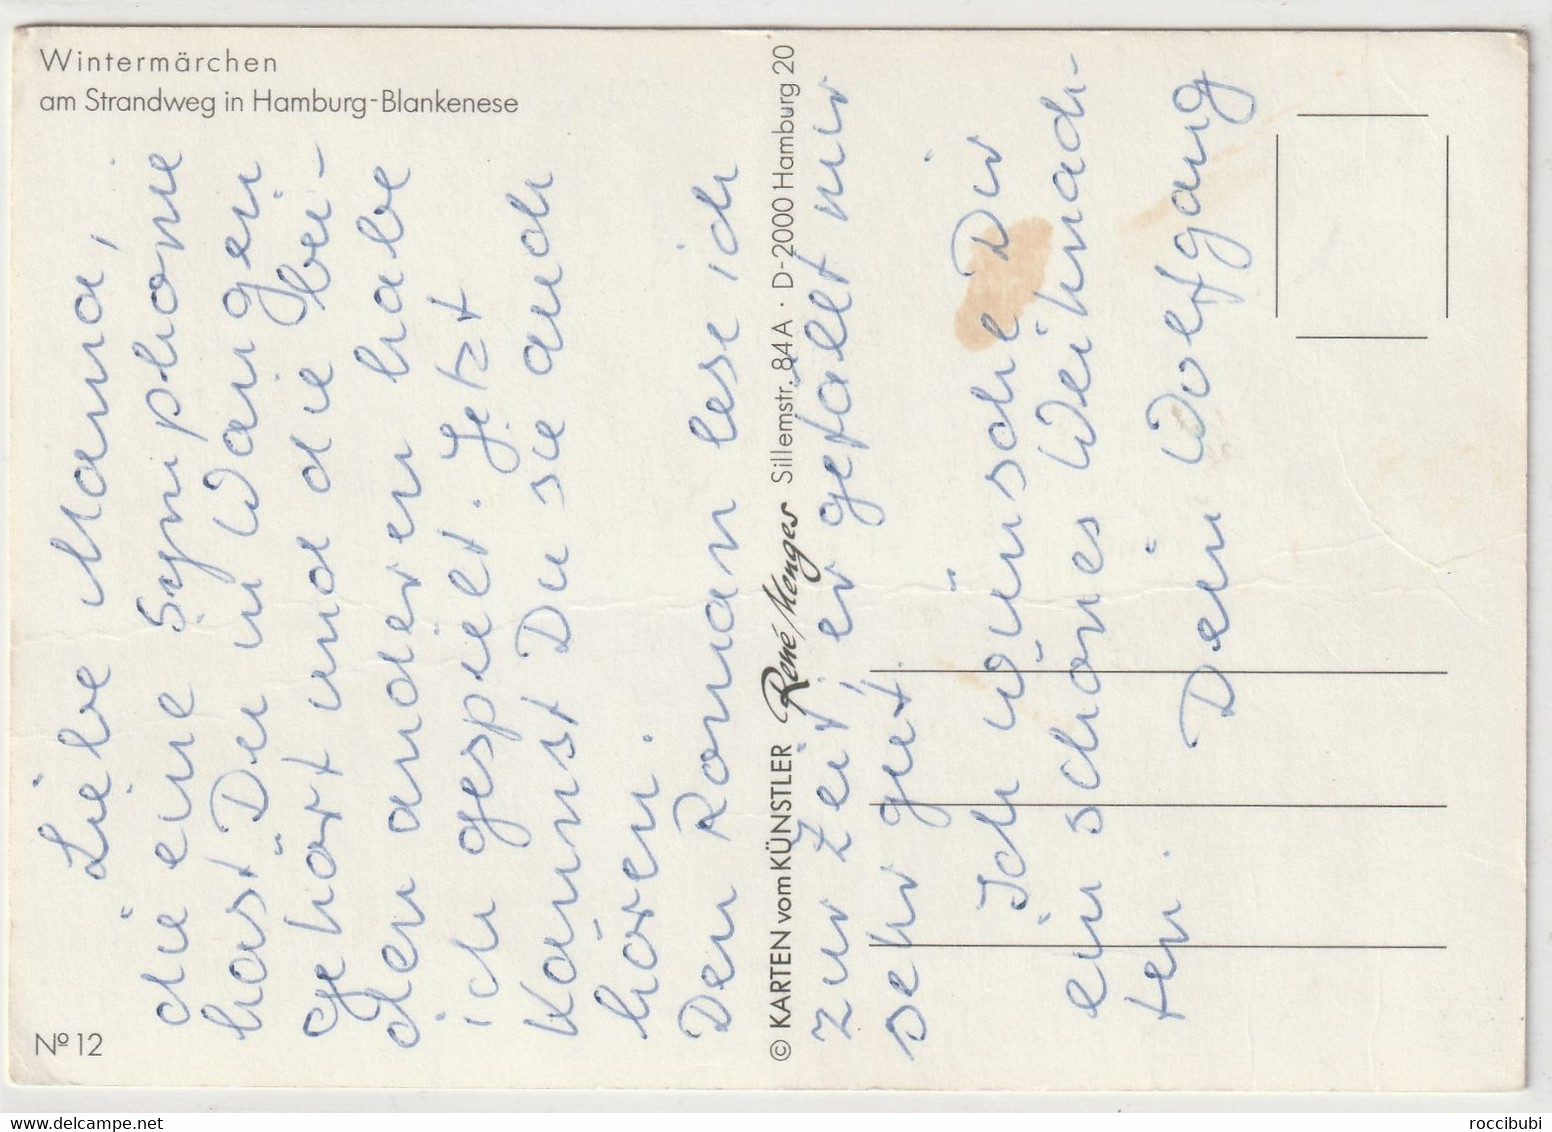 Wintermärchen
am Strandweg in Hamburg-Blankenese
Liebe Mama,
die eine Symphonie
hast Du in Wangen
gehört und die bei-
den anderen habe
ich gespielt. Jetzt
kannst Du sie auch
hören.
Den Roman lese ich
zur Zeit, er gefällt mir
sehr gut.
Ich wünsche Dir
ein schönes Weihnach-
ten.
Dein Wolfgang
Nº 12
© KARTEN vom KÜNSTLER René Menges Sillemstr. 84A · D-2000 Hamburg 20
delcampe.net
roccibubi